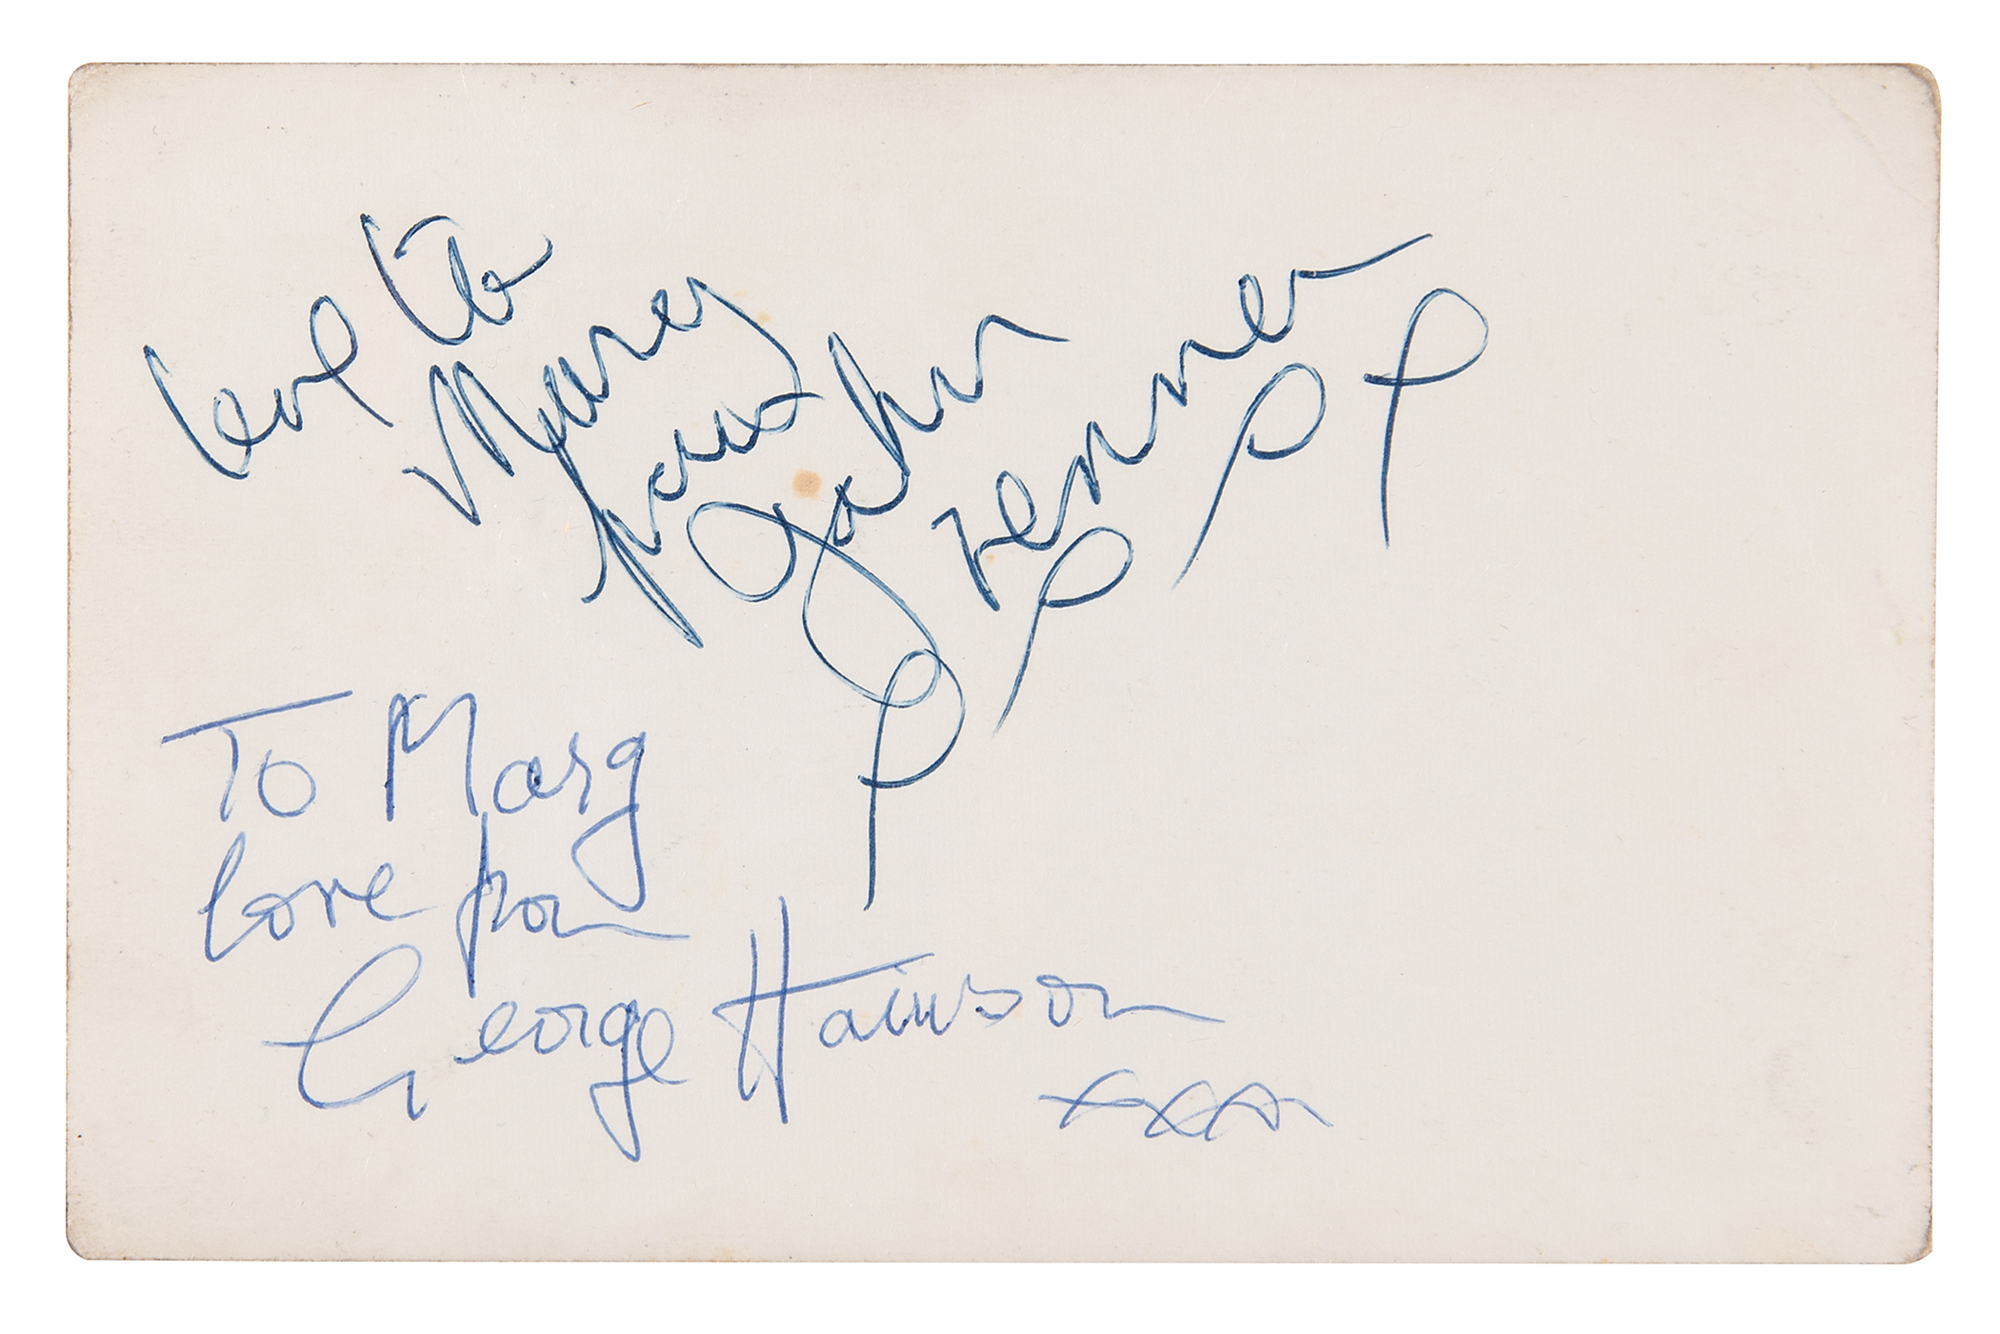 love to
Mary
from
John
Lennon
To Mary
love from
George Harrison
xxx